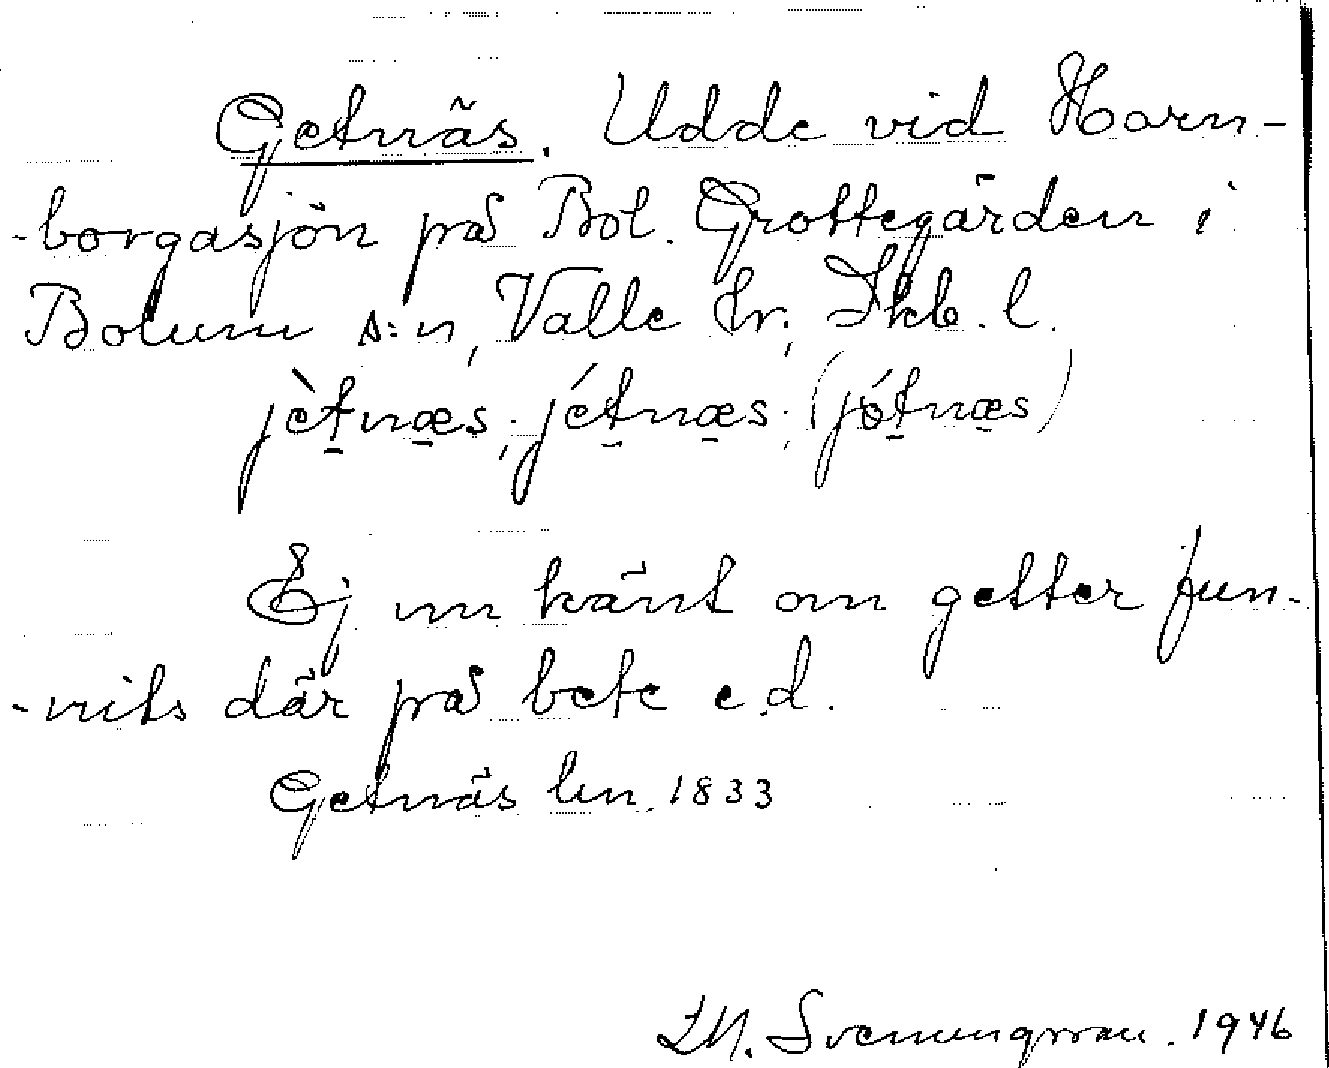 Getnäs. Udde vid Horn-
-borgasjön på Bol. Grottegården i
Bolum s:n, Valle hr; Skb. l.
jètnæs; jétnæs; (jótnæs)
Ej nu känt om getter fun-
-nits där på bete e.d.
Getnäs len. 1833
Svenungsson. 1946